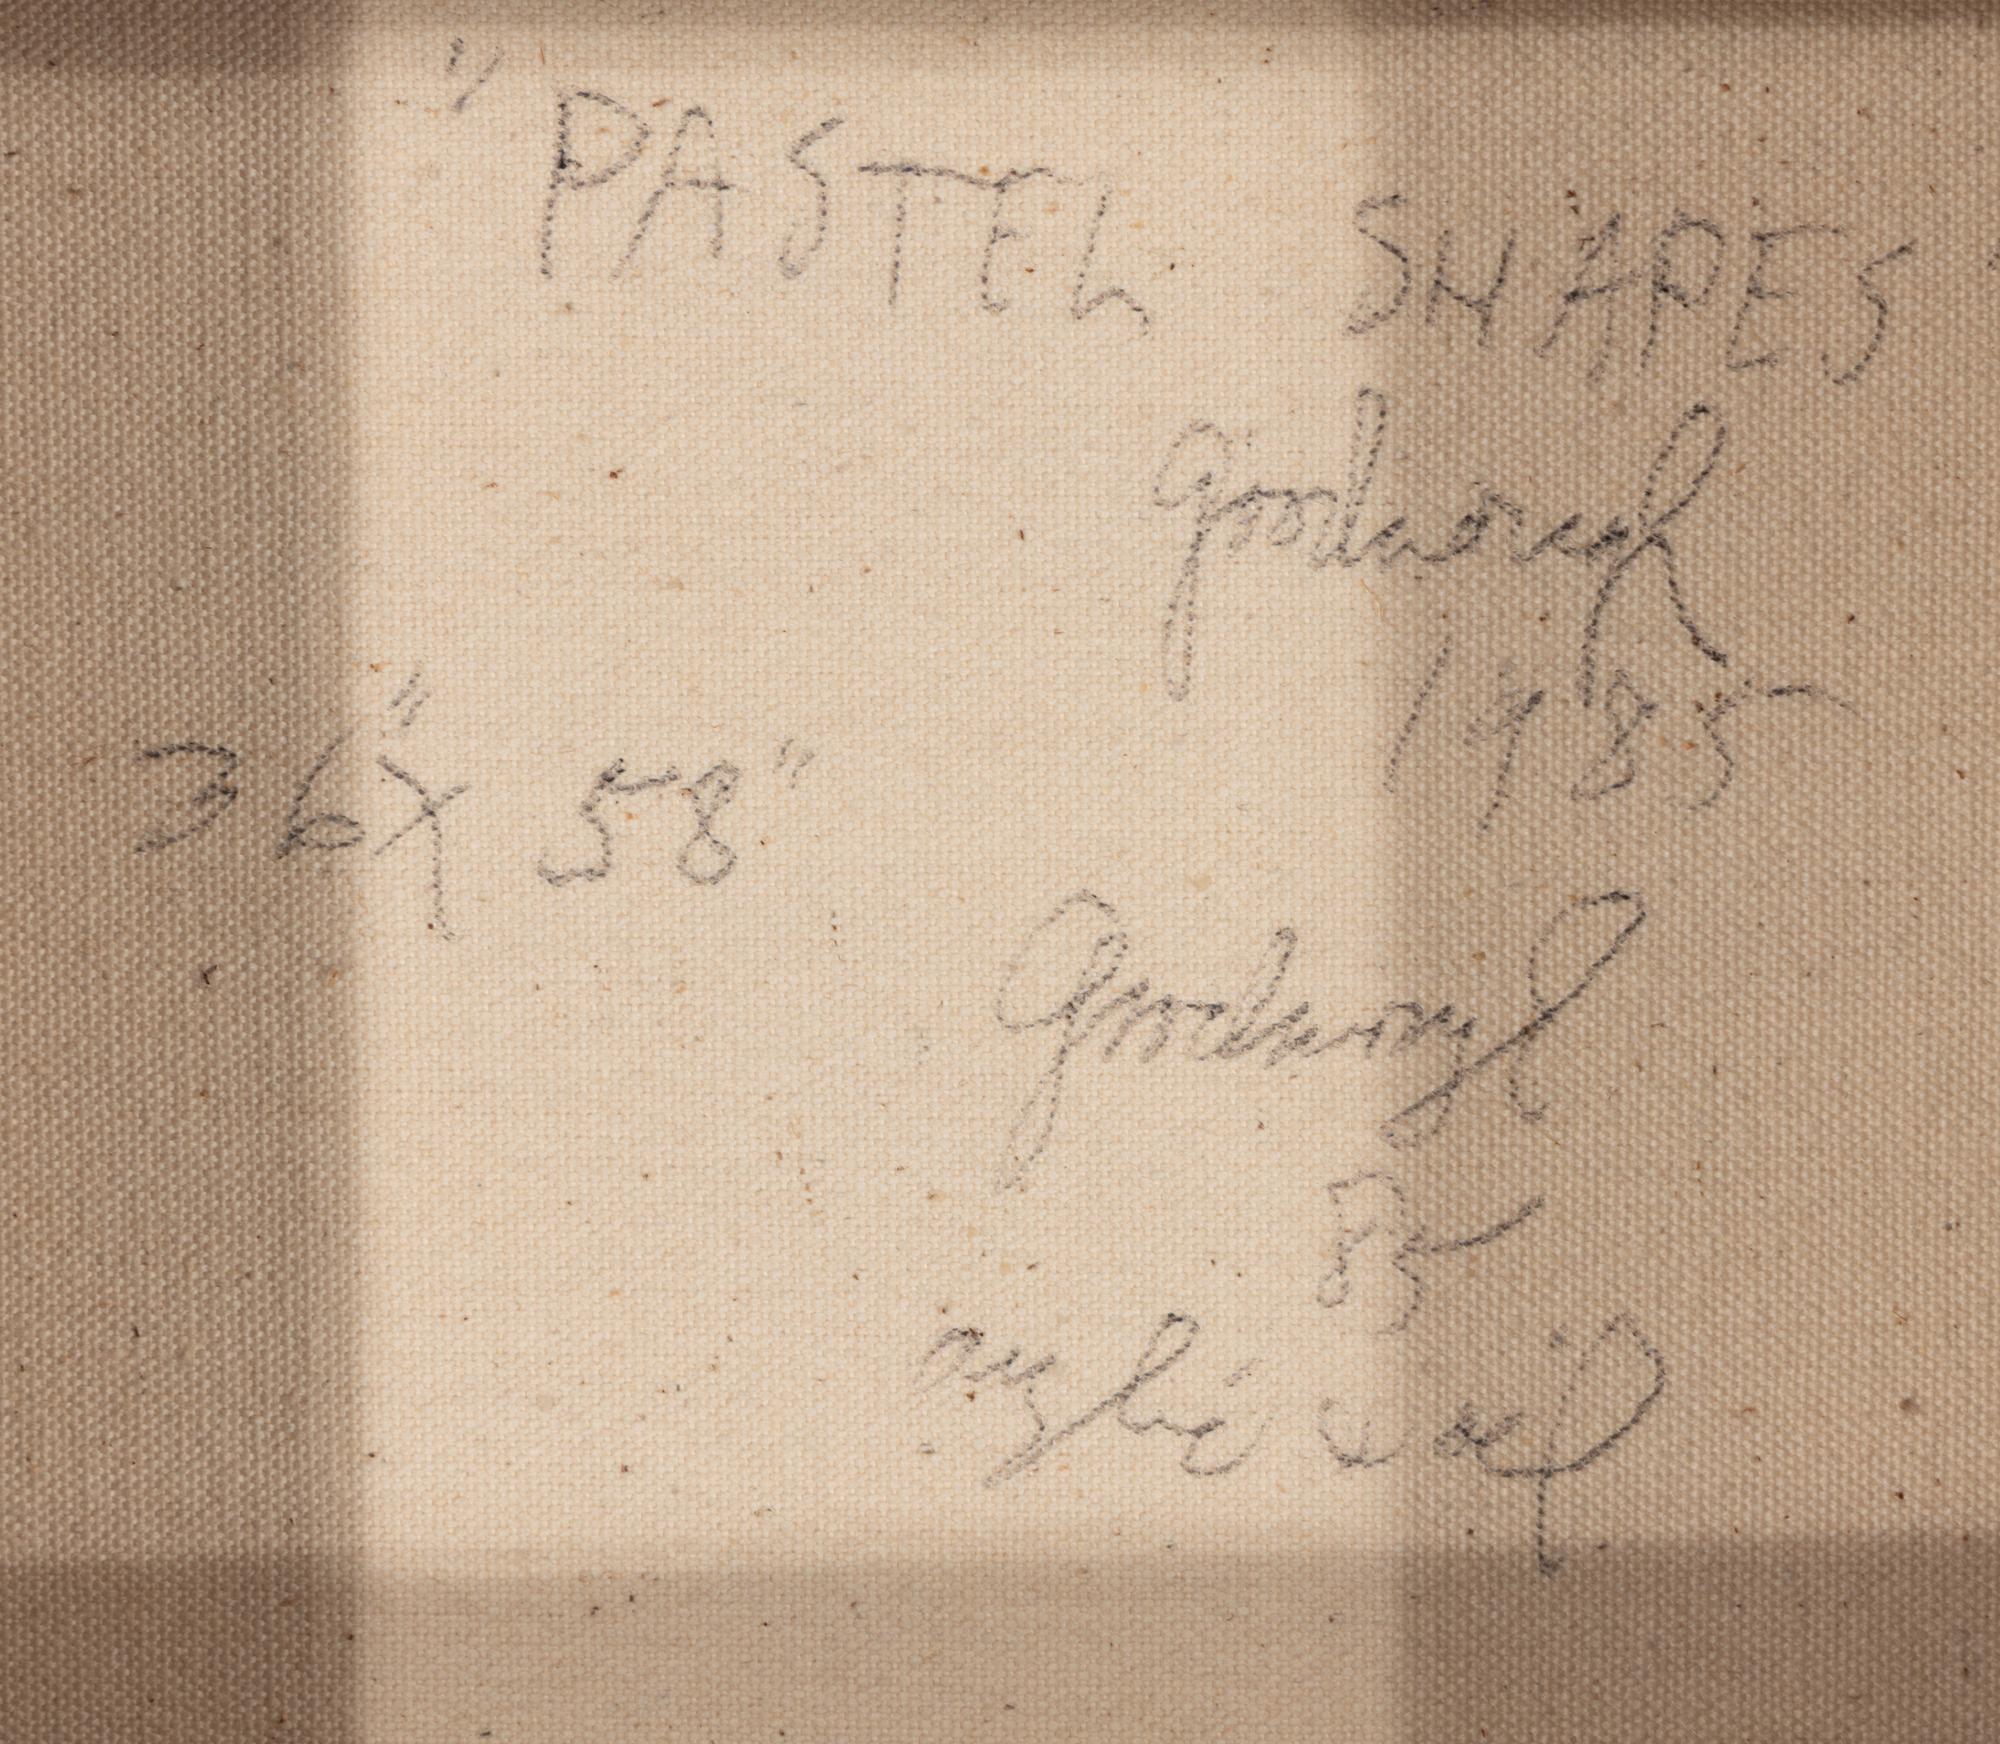 "PASTEL SHAPES"
Goodnough
1985
36" X 58"
Goodnough
85